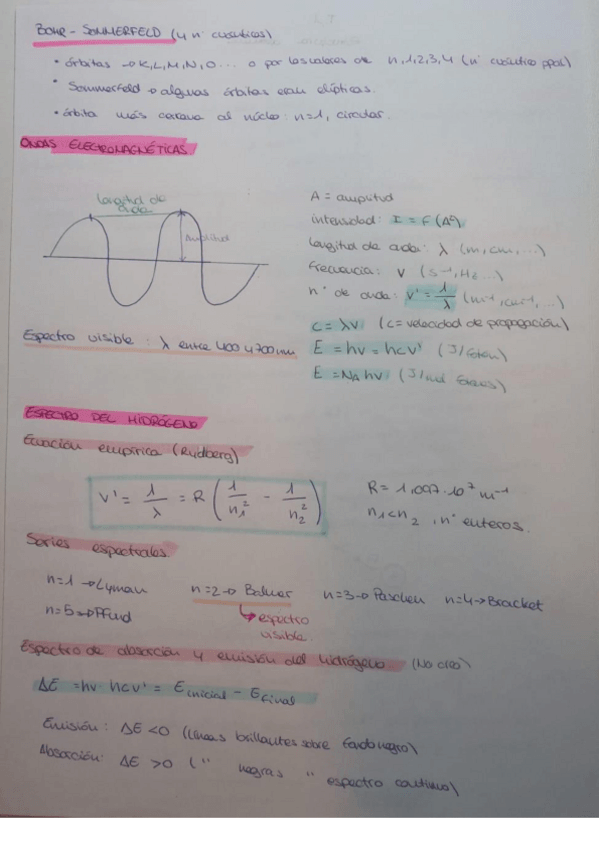 BOHR - SOMMERFELD (4 nº cuánticos)
• órbitas → K, L, M, N, O ... o por los valores de n, 1, 2, 3, 4 (nº cuántico ppal)
• Sommerfeld → algunas órbitas eran elípticas.
• órbita más cercana al núcleo: n=1, circular.
ONDAS ELECTROMAGNÉTICAS
longitud de onda
Amplitud
A = amplitud
intensidad: I = F (A²)
longitud de onda: λ (m, cm, ...)
Frecuencia: ν (s⁻¹, Hz ...)
nº de onda: ν' = 1/λ (m⁻¹, cm⁻¹, ...)
c = λν (c = velocidad de propagación)
Espectro visible: λ entre 400 y 700 nm
E = hν = hcν' (J/foton)
E = NA hν (J/mol fotones)
ESPECTRO DEL HIDRÓGENO
Ecuación empírica (Rydberg)
ν' = 1/λ = R (1/n₁² - 1/n₂²)
R = 1,097·10⁷ m⁻¹
n₁<n₂, nº enteros.
Series espectrales
n=1 → Lyman n=2 → Balmer n=3 → Paschen n=4 → Bracket
n=5 → Pfund
↳ espectro visible.
Espectro de absorción y emisión del hidrógeno (No creo)
ΔE = hν hcν' = E inicial - E final
Emisión: ΔE <0 (líneas brillantes sobre fondo negro)
Absorción: ΔE >0 (" negras " espectro continuo)